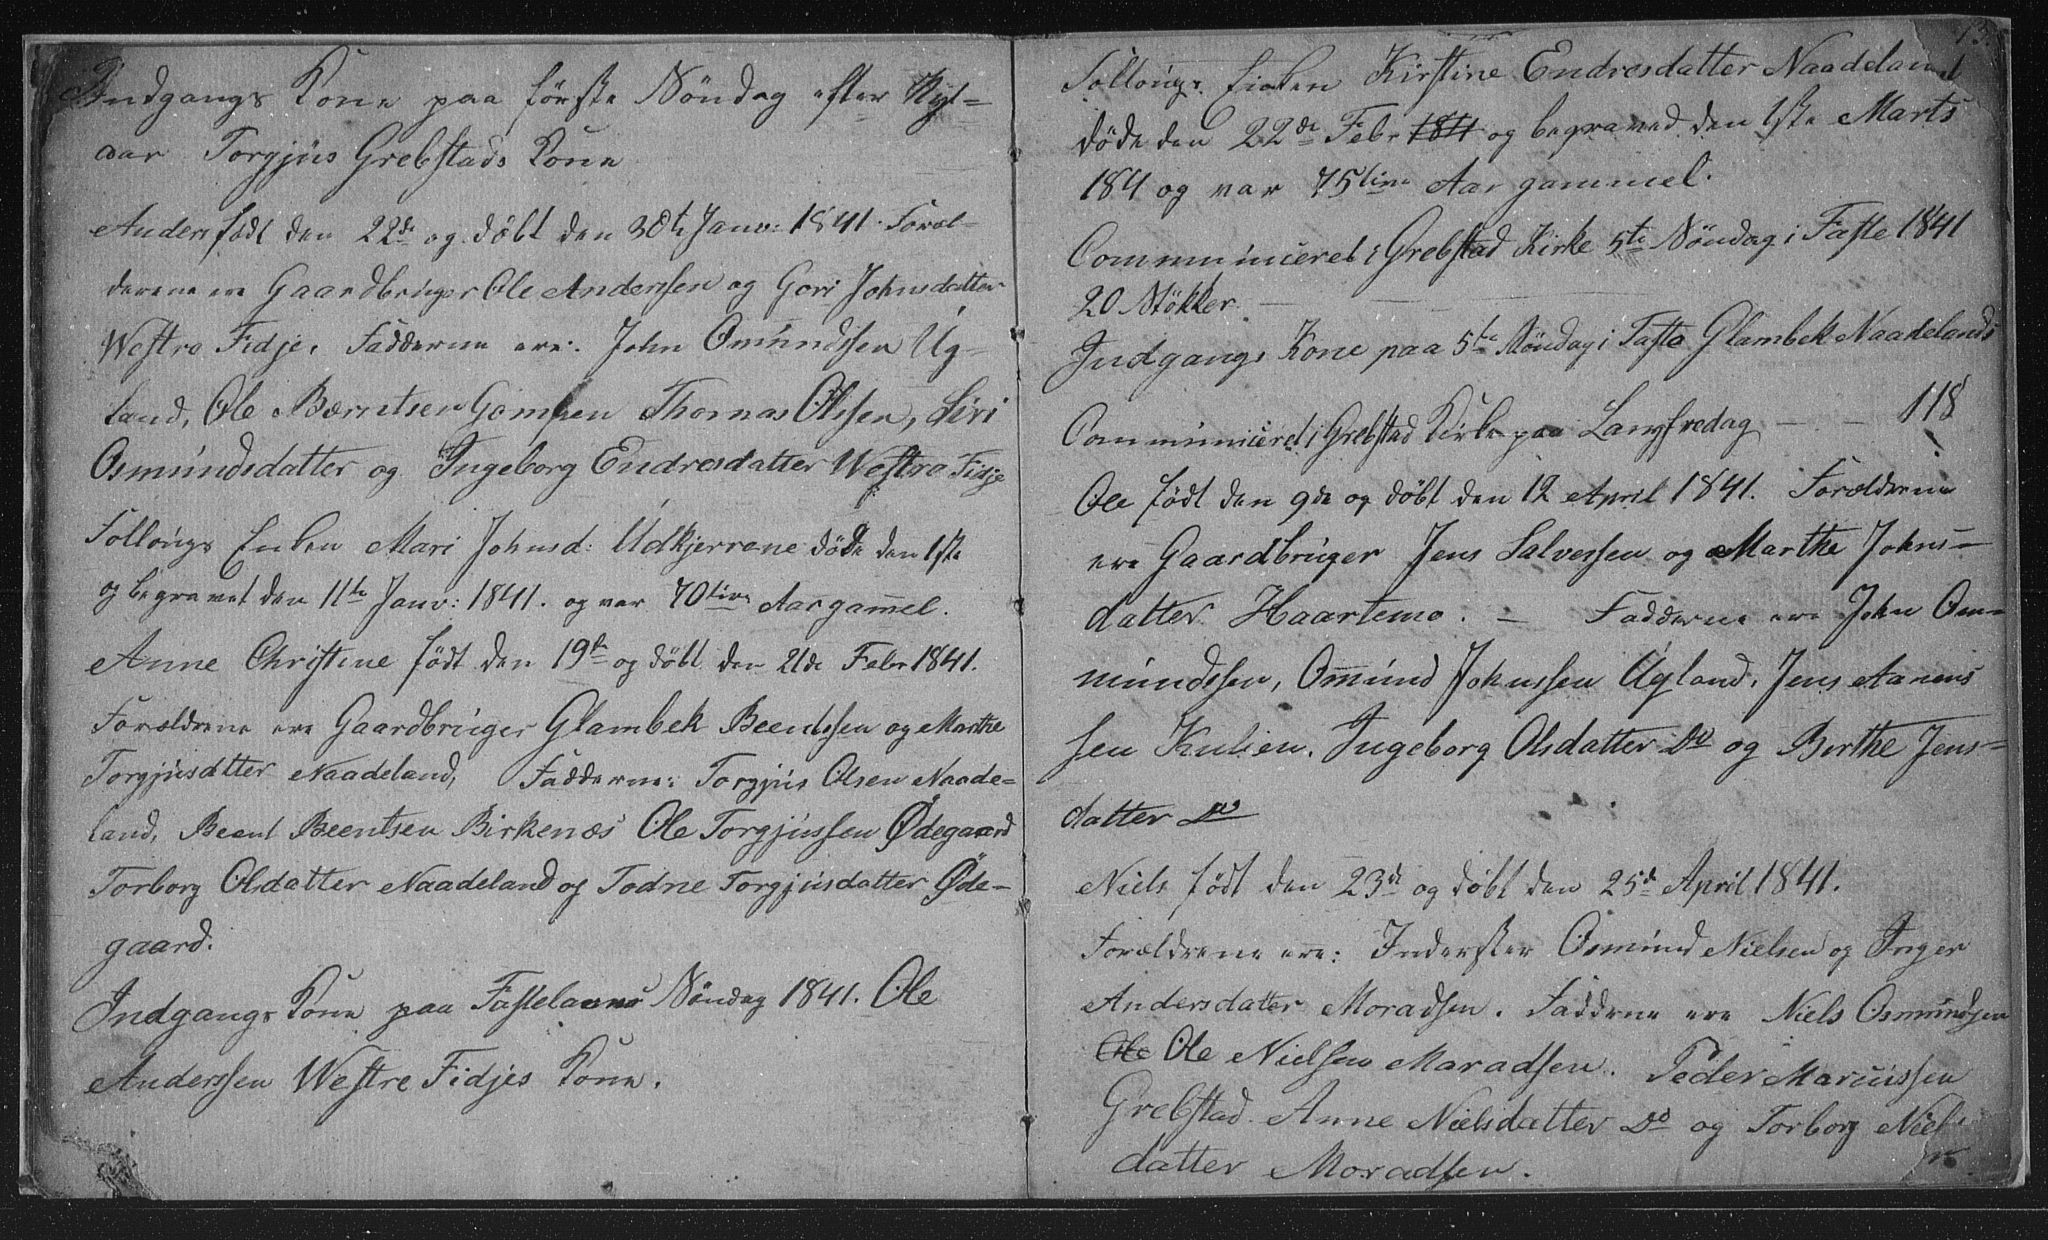 Indgangs Kone paa første Søndag efter Nyt-
aar Torgjus Grebstads Kone
Anders født den 22de og døbt den 30te Janv: 1841. Foræl-
drene ere Gaardbruger Ole Anderssen og Gori Johnsdatter
Westre Fidje. Fadderne ere: John Omundssen Ug-
land, Ole Bærntsen Thomas Olssen, Siri
Osmundsdatter og Ingeborg Endresdatter Westre Fidje
Follougs Enken Mari Johnsd: Udkjerrene døde den 1ste
og begravet den 11te Janv: 1841. og var 70tive Aar gammel.
Anne Christine født den 19de og døbt den 21de Febr 1841.
Forældrene ere Gaardbruger Glambek Beentssen og Marthe
Torgjusdatter Naadeland, Fadderne: Torgjus Olsen Naade-
land, Beent Beentsen Birkenæs Ole Torgjussen Ødegaard
Torborg Olsdatter Naadeland og Todne Torgjusdatter Øde-
gaard.
Indgangs Kone paa Fastelauns Søndag 1841. Ole
Anderssen Westre Fidjes Kone.
13.
Follougs Enken Kirstine Endresdatter Naadeland
døde den 22de Febr 1841 og begraved den 1ste Marts
184 og var 75tive Aar gammel.
Communiceret i Grebstad Kirke 5te Søndag i Faste 1841
20 Støkker. —
Indgangs Kone paa 5te Søndag i Faste Glambek Naadelands
Communiceret i Grebstad Kirke paa Langfredag — — 118
Ole født den 9de og døbt den 12 April 1841. Forælderne
ere Gaardbruger Jens Salvessen og Marthe Johns-
datter Haartemo. — Fadderne ere John Om-
mundssen, Omund Johnssen Ugland, Jens Aanens
sen Kulien, Ingeborg Olsdatter Do og Birthe Jens-
datter Do
Niels født den 23de og døbt den 25de April 1841.
Forældrene ere: Inderster Osmund Nielsen og Inger
Andersdatter Moradsen. Faddene ere Niels Osmundsen
Ole Ole Nielsen Maradsen. Peder Marcussen
Grebstad Anne Nielsdatter Do og Torborg Niels
datter Moradsen.